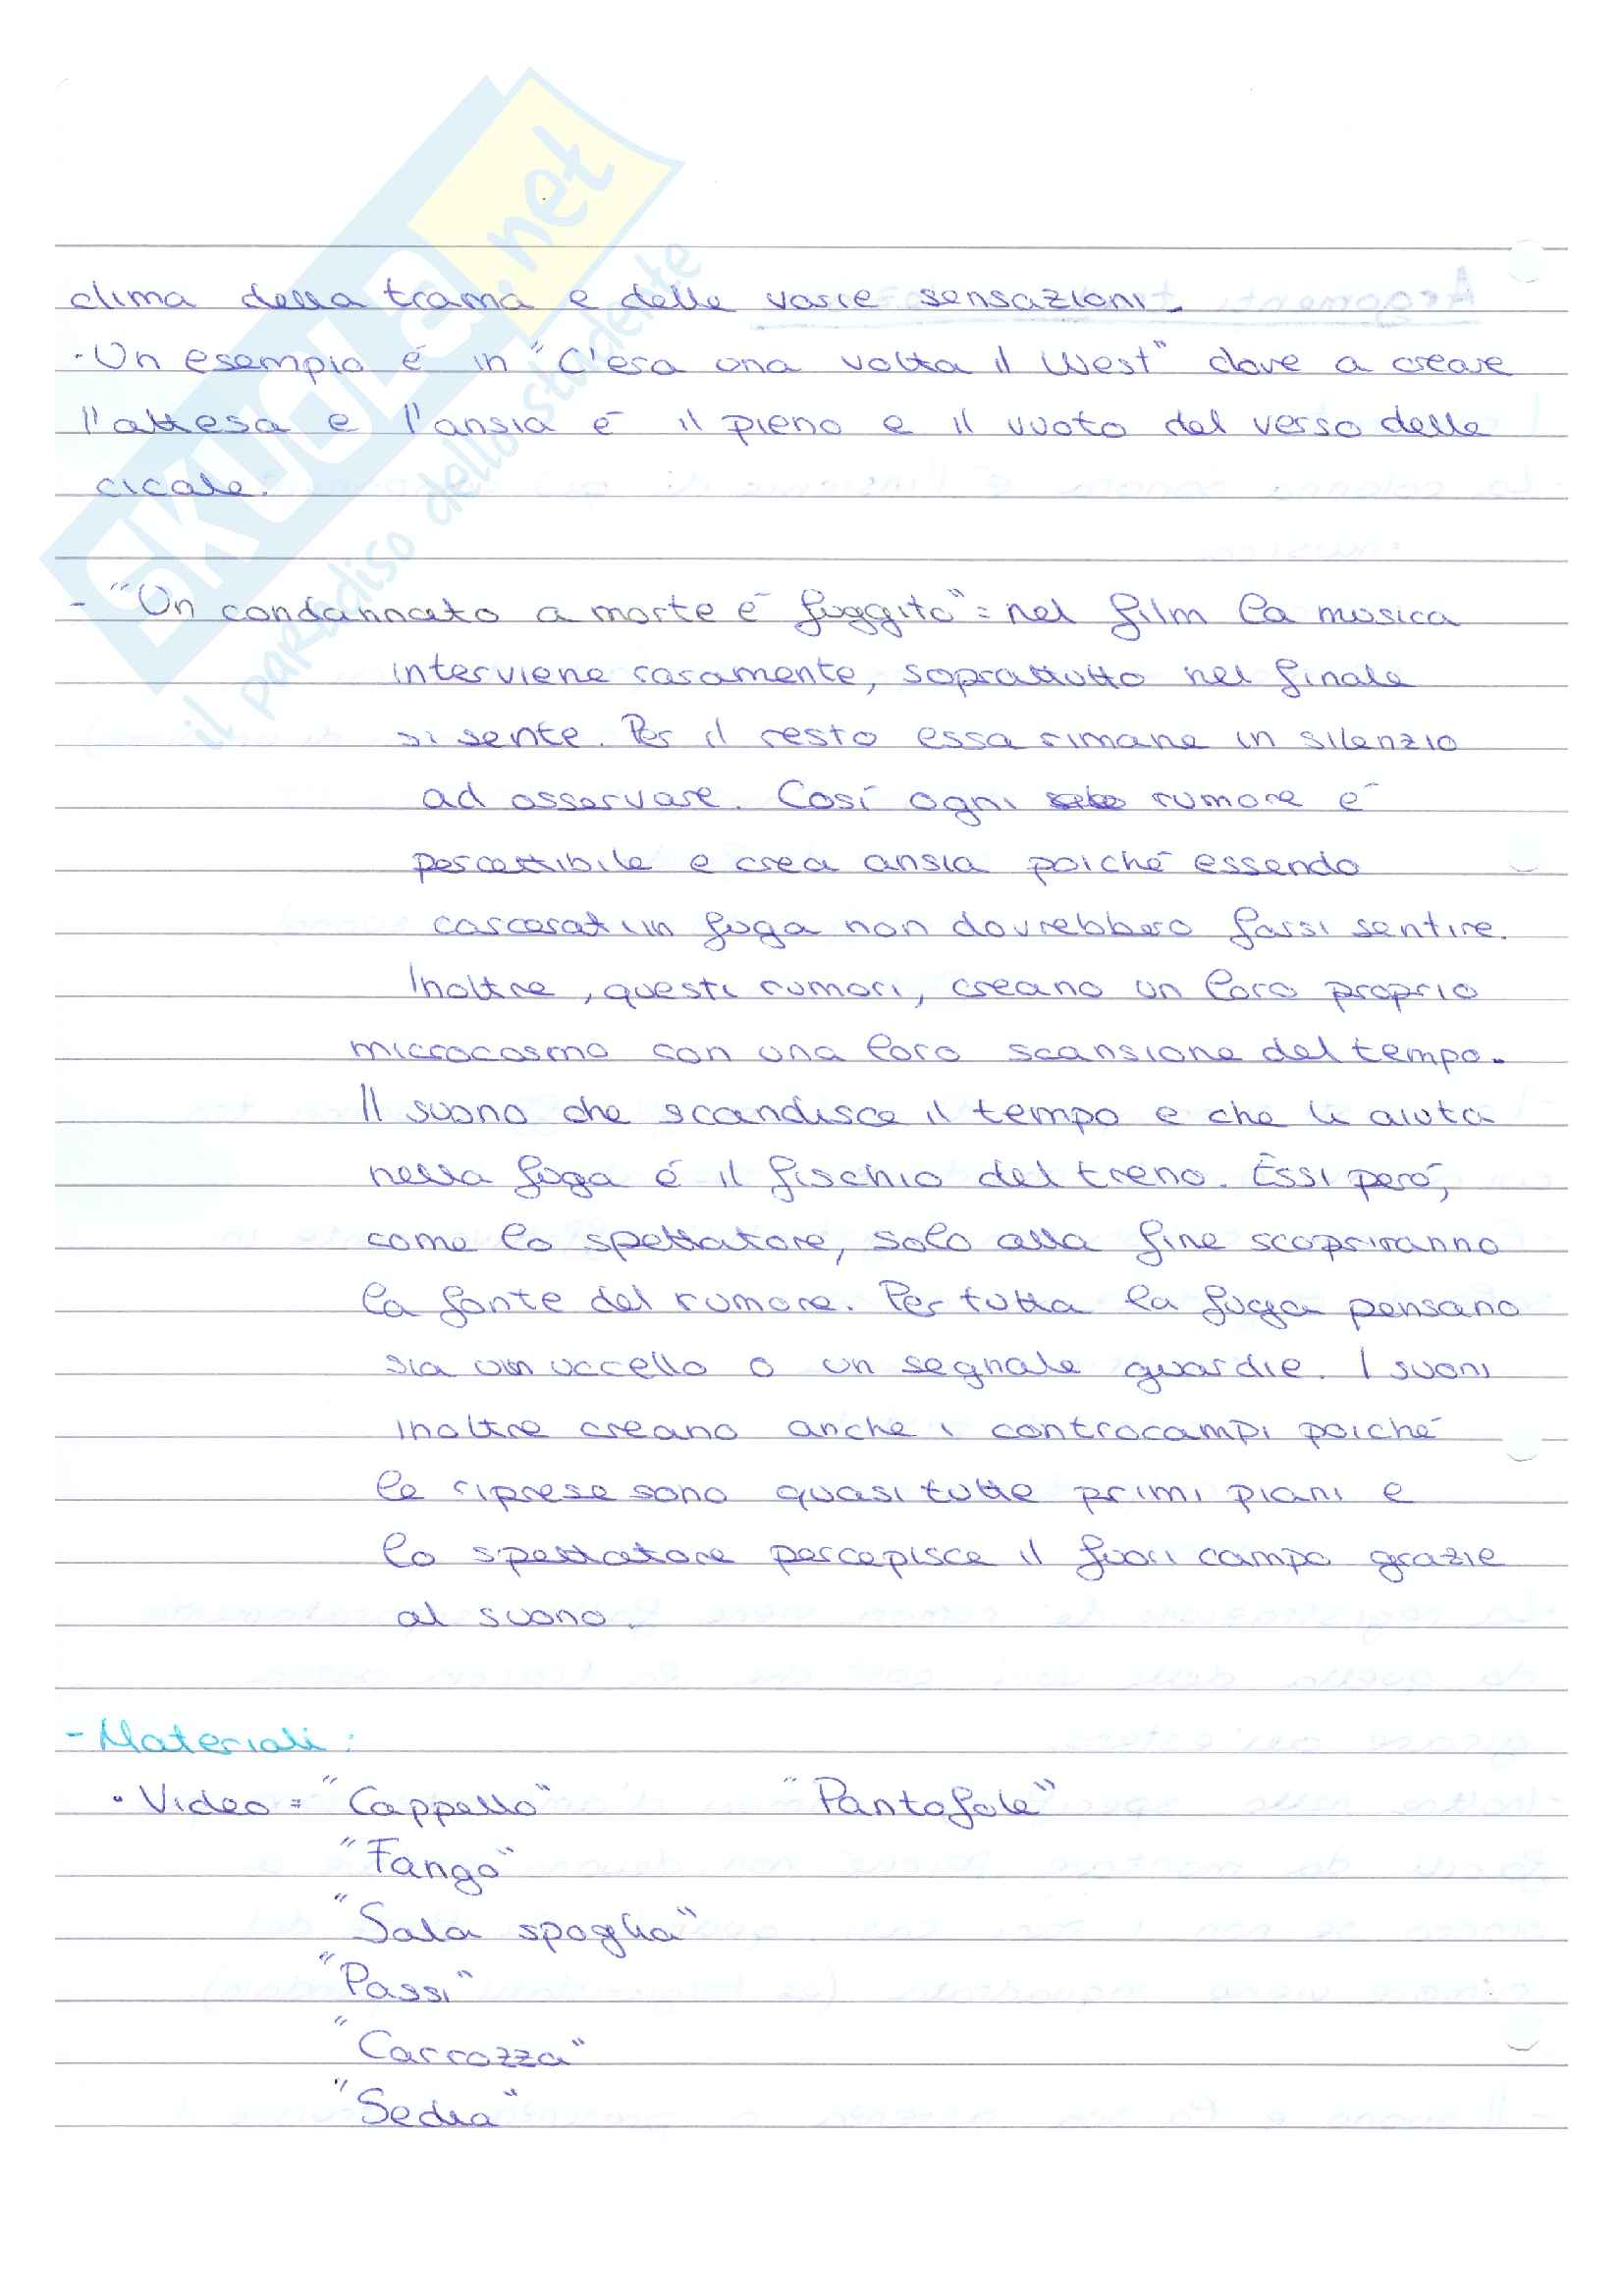 skuola.net
il paradiso dello studente
clima della trama e delle varie sensazioni.
·Un esempio é in "C'era una volta il West" dove a creare
l'attesa e l'ansia é il pieno e il vuoto del verso delle
cicale.
- "Un condannato a morte é fuggito" = nel film la musica
interviene raramente, soprattutto nel finale
si sente. Per il resto essa rimane in silenzio
ad osservare. Cosí ogni rumore é
percettibile e crea ansia poiché essendo
carcerati in fuga non dovrebbero farsi sentire.
Inoltre, questi rumori, creano un loro proprio
microcosmo con una loro scansione del tempo.
Il suono che scandisce il tempo e che li aiuta
nella fuga é il fischio del treno. Essi peró,
come lo spettatore, solo alla fine scopriranno
la fonte del rumore. Per tutta la fuga pensano
sia un uccello o un segnale guardie. I suoni
inoltre creano anche i controcampi poiché
le riprese sono quasi tutte primi piani e
lo spettatore percepisce il fuori campo grazie
al suono.
- Materiali:
· Video = "Cappello" "Pantofole"
"Fango"
"Sala spoglia"
"Passi"
"Carrozza"
"Sedia"